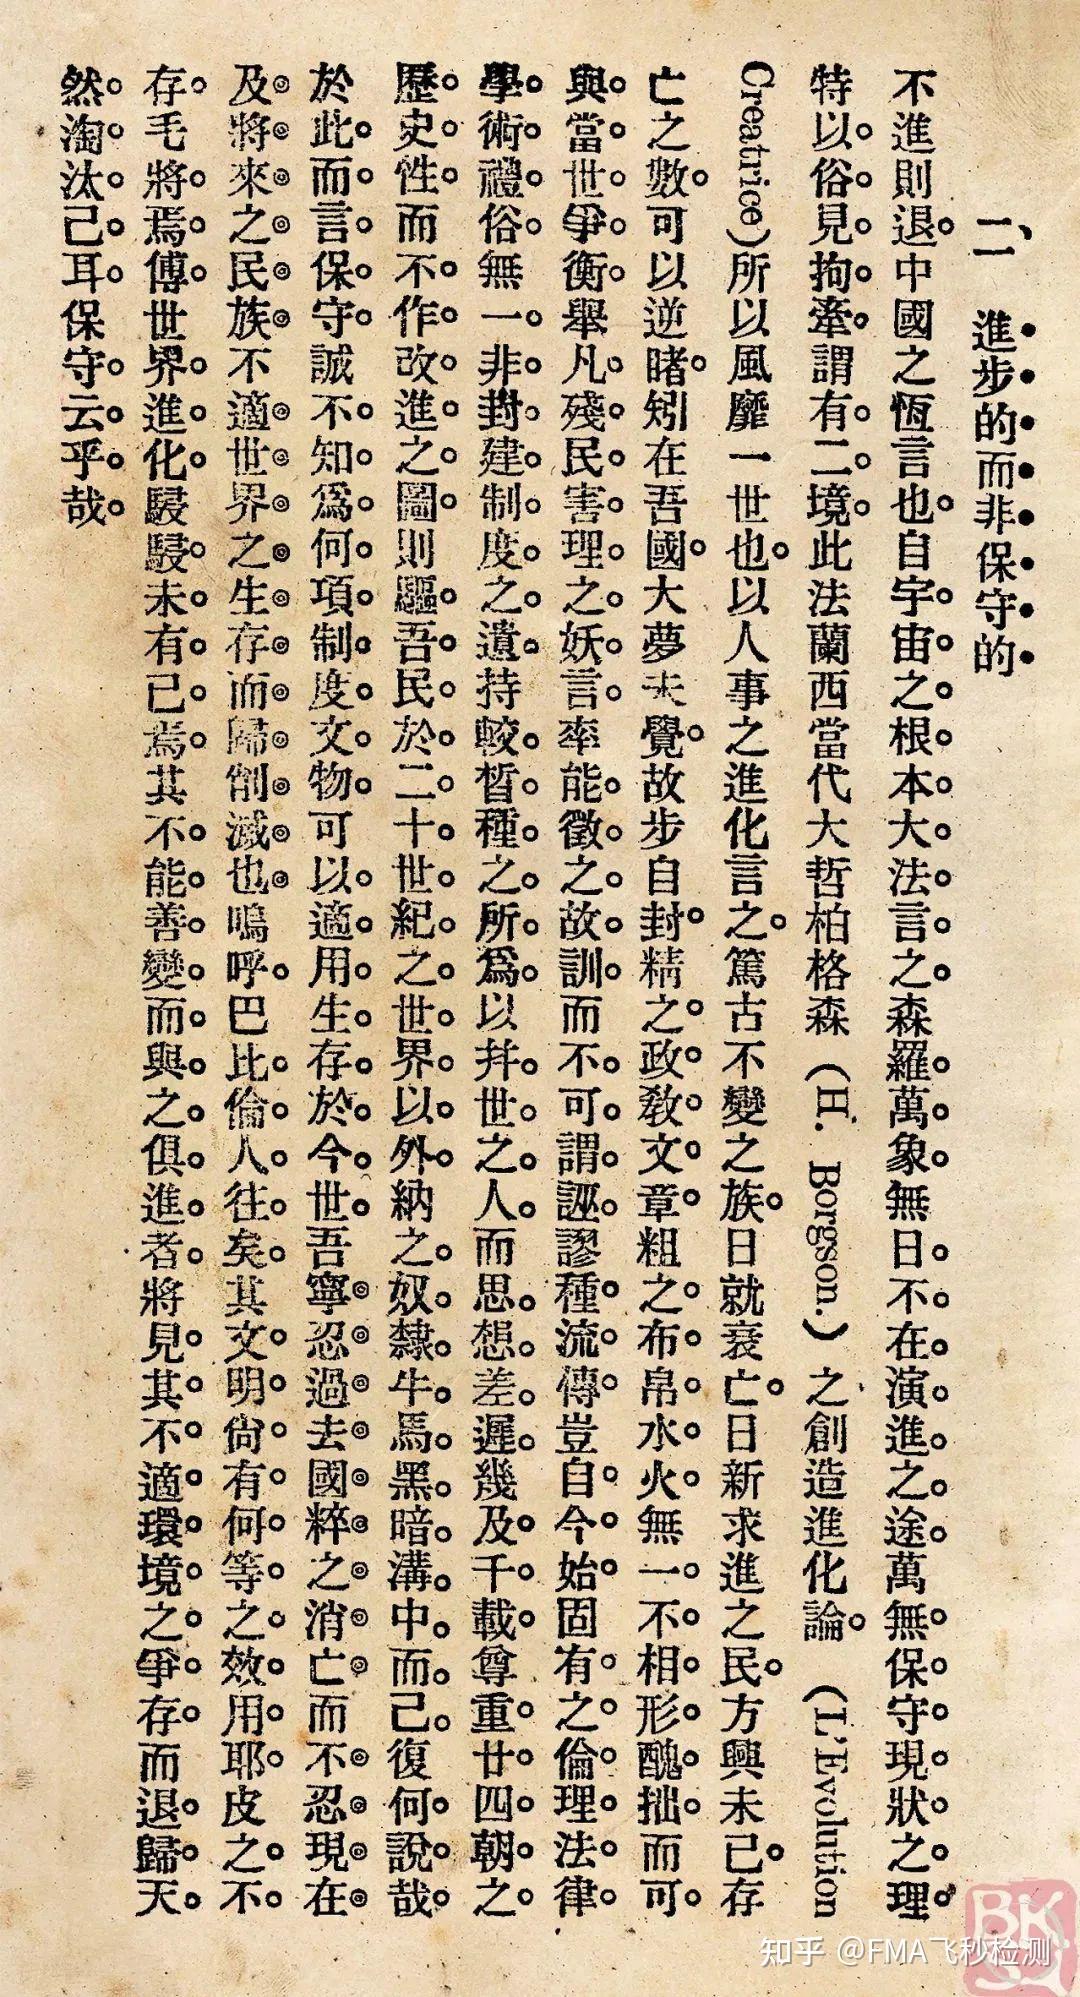 二、進步的而非保守的
不進則退中國之恆言也自宇宙之根本大法言之森羅萬象無日不在演進之途萬無保守現狀之理
特以俗見拘牽謂有二境此法蘭西當代大哲柏格森（H. Borgson.）之創造進化論（L'Evolution
Creatrice）所以風靡一世也以人事之進化言之篤古不變之族日就衰亡日新求進之民方興未已存
亡之數可以逆睹矧在吾國大夢未覺故步自封精之政敎文章粗之布帛水火無一不相形醜拙而可
與當世爭衡舉凡殘民害理之妖言率能徵之故訓而不可謂誣謬種流傳豈自今始固有之倫理法律
學術禮俗無一非封建制度之遺持較晳種之所爲以幷世之人而思想差遲幾及千載尊重廿四朝之
歷史性而不作改進之圖則驅吾民於二十世紀之世界以外納之奴隸牛馬黑暗溝中而已復何說哉
於此而言保守誠不知爲何項制度文物可以適用生存於今世吾寧忍過去國粹之消亡而不忍現在
及將來之民族不適世界之生存而歸削滅也嗚呼巴比倫人往矣其文明尙有何等之效用耶皮之不
存毛將焉傅世界進化駸駸未有已焉其不能善變而與之俱進者將見其不適環境之爭存而退歸天
然淘汰已耳保守云乎哉
BK
知乎 @FMA飞秒检测